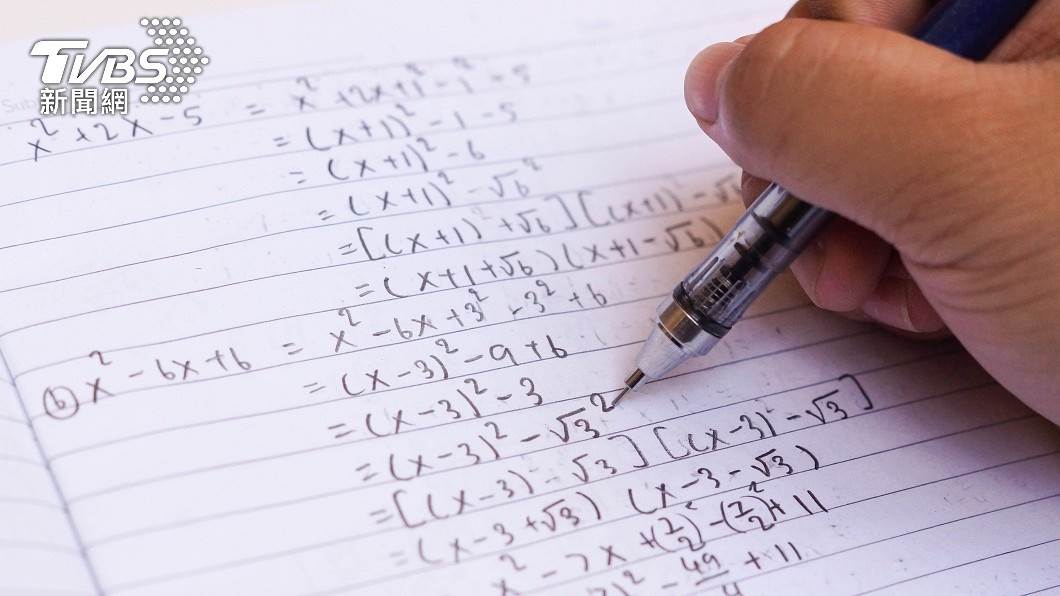 TVBS
新聞網
x² + 2x - 5 = x² + 2x + 1² - 1² - 5
= (x+1)² - 1 - 5
= (x+1)² - 6
= (x+1)² - √6²
= [(x+1)² + √6] [(x+1) - √6
= (x+1+√6) (x+1-√6)
(b) x² - 6x + 6 = x² - 6x + 3² - 3² + 6
= (x-3)² - 9 + 6
= (x-3)² - 3
= (x-3)² - √3²
= [(x-3) - √3] [(x-3)² - √3]
= (x-3+√3) (x-3-√3)
x² - 7x + (7/2)² - (7/2)² + 11
)² - 49/4 + 11